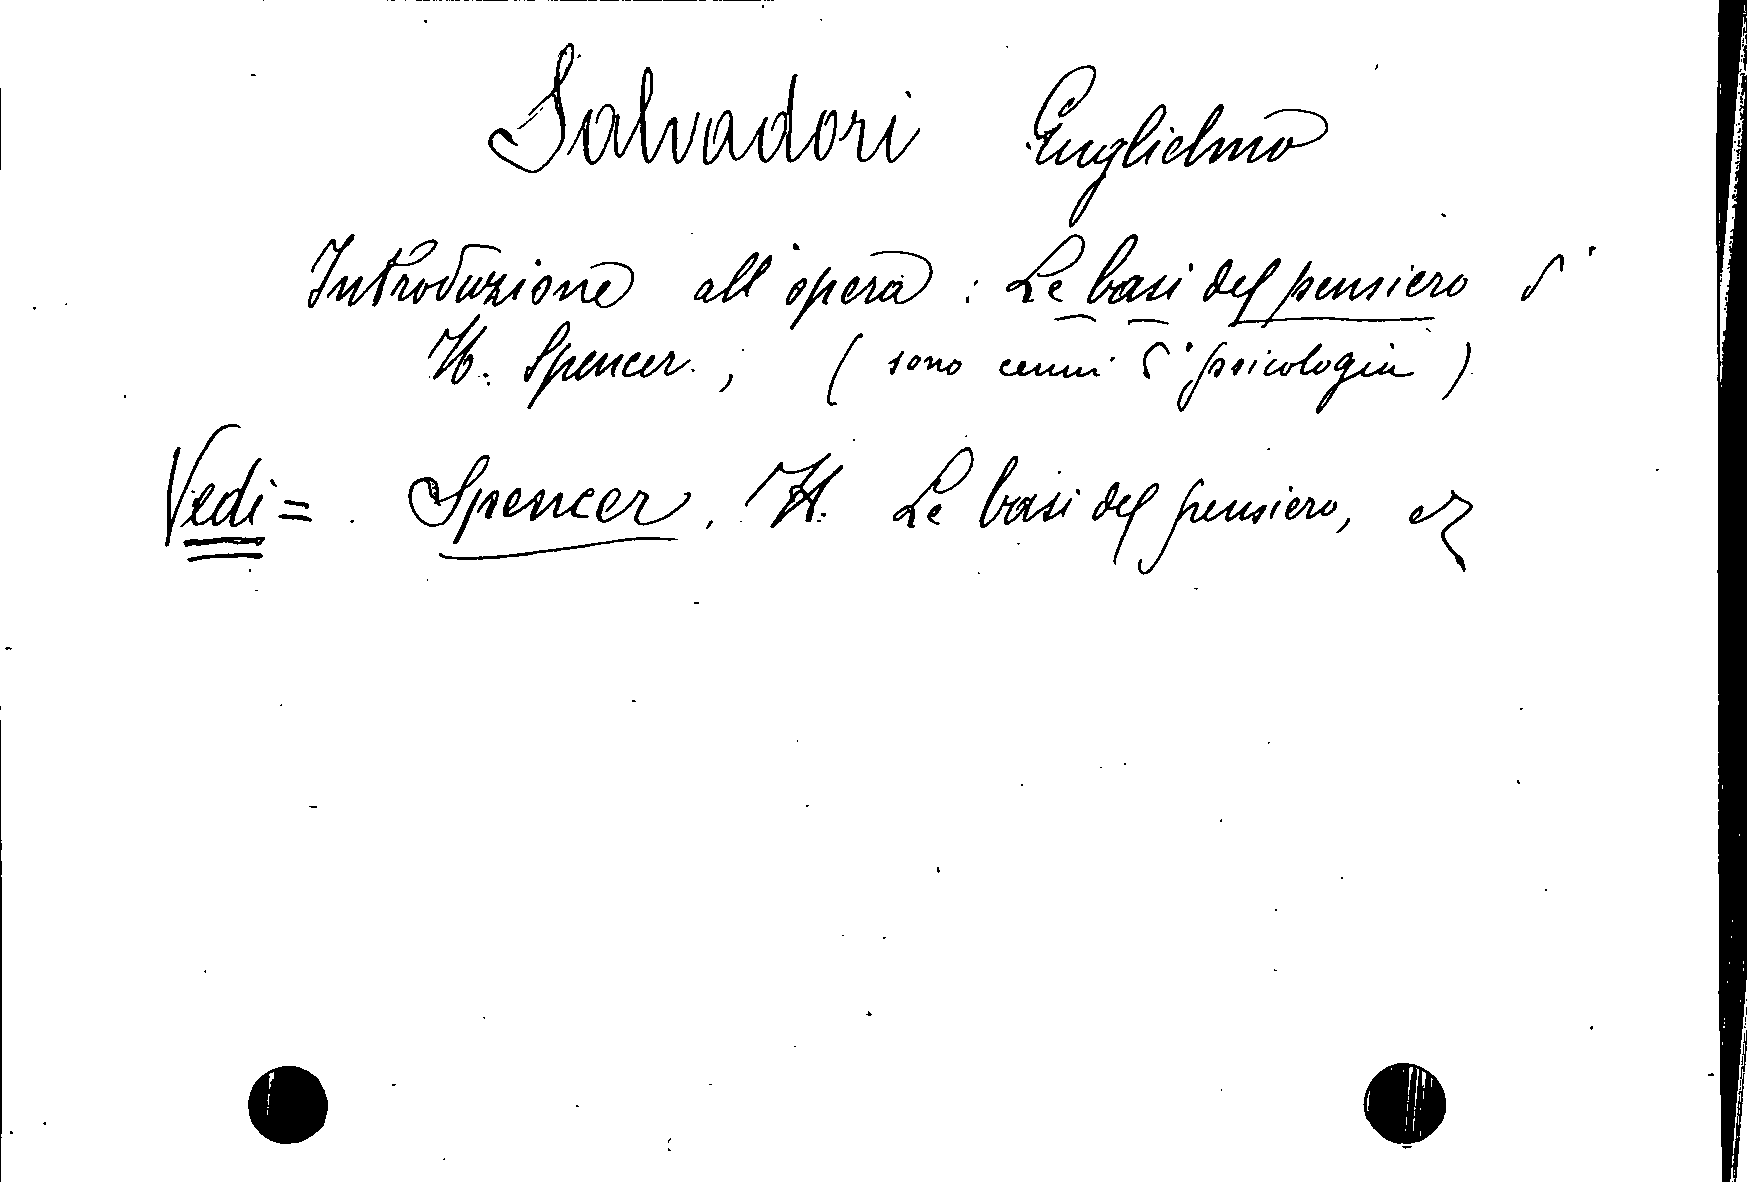 Salvadori Guglielmo
Introduzione all'opera : Le basi del pensiero di
H. Spencer ; ( sono cenni di psicologia )
Vedi = Spencer. H. Le basi del pensiero,